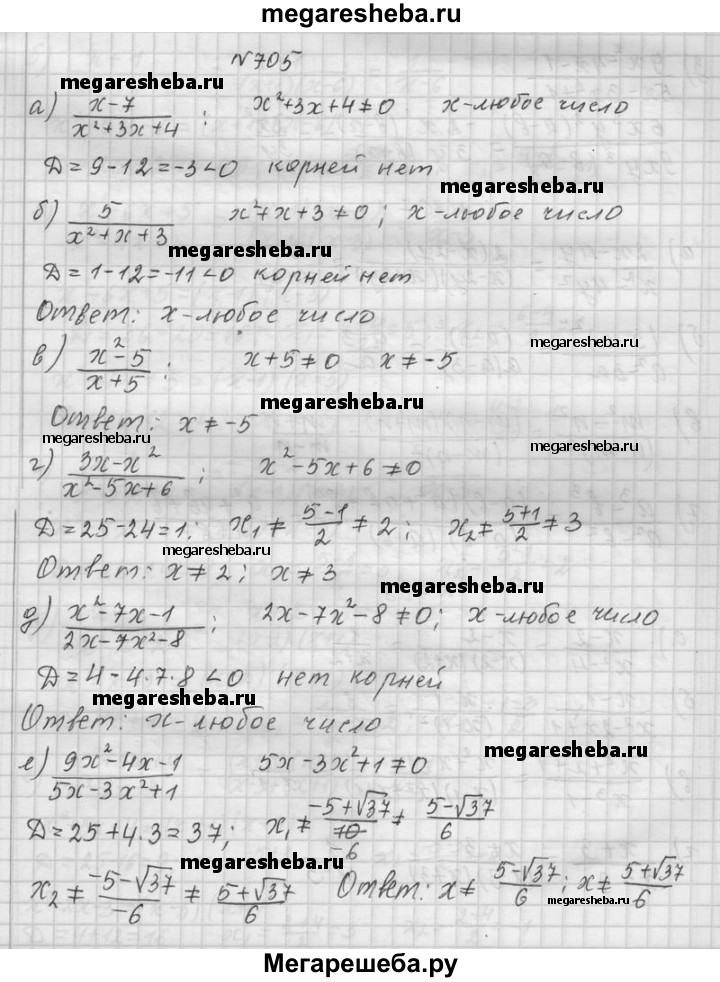 megaresheba.ru
№705
megaresheba.ru
а) (x-7)/(x²+3x+4) ; x²+3x+4≠0 x-любое число
Д=9-12=-3<0 корней нет
megaresheba.ru
б) 5/(x²+x+3) x²+x+3≠0; x-любое число
megaresheba.ru
Д=1-12=-11<0 корней нет
Ответ: x-любое число
megaresheba.ru
в) (x²-5)/(x+5) ; x+5≠0 x≠-5
megaresheba.ru
Ответ: x≠-5
megaresheba.ru
megaresheba.ru
г) (3x-x²)/(x²-5x+6) ; x²-5x+6≠0
Д=25-24=1; x₁≠(5-1)/2≠2; x₂≠(5+1)/2≠3
megaresheba.ru
Ответ: x≠2; x≠3
megaresheba.ru
д) (x²-7x-1)/(2x-7x²-8) ; 2x-7x²-8≠0; x-любое число
Д=4-4·7·8<0 нет корней
megaresheba.ru
Ответ: x-любое число
megaresheba.ru
е) (9x²-4x-1)/(5x-3x²+1) 5x-3x²+1≠0
Д=25+4·3=37; x₁≠(-5+√37)/-6≠(5-√37)/6
megaresheba.ru
x₂≠(-5-√37)/-6≠(5+√37)/6 Ответ: x≠(5-√37)/6; x≠(5+√37)/6
megaresheba.ru
Мегарешеба.ру